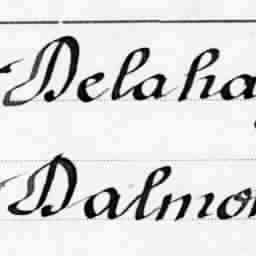 Delaha
Dalmon